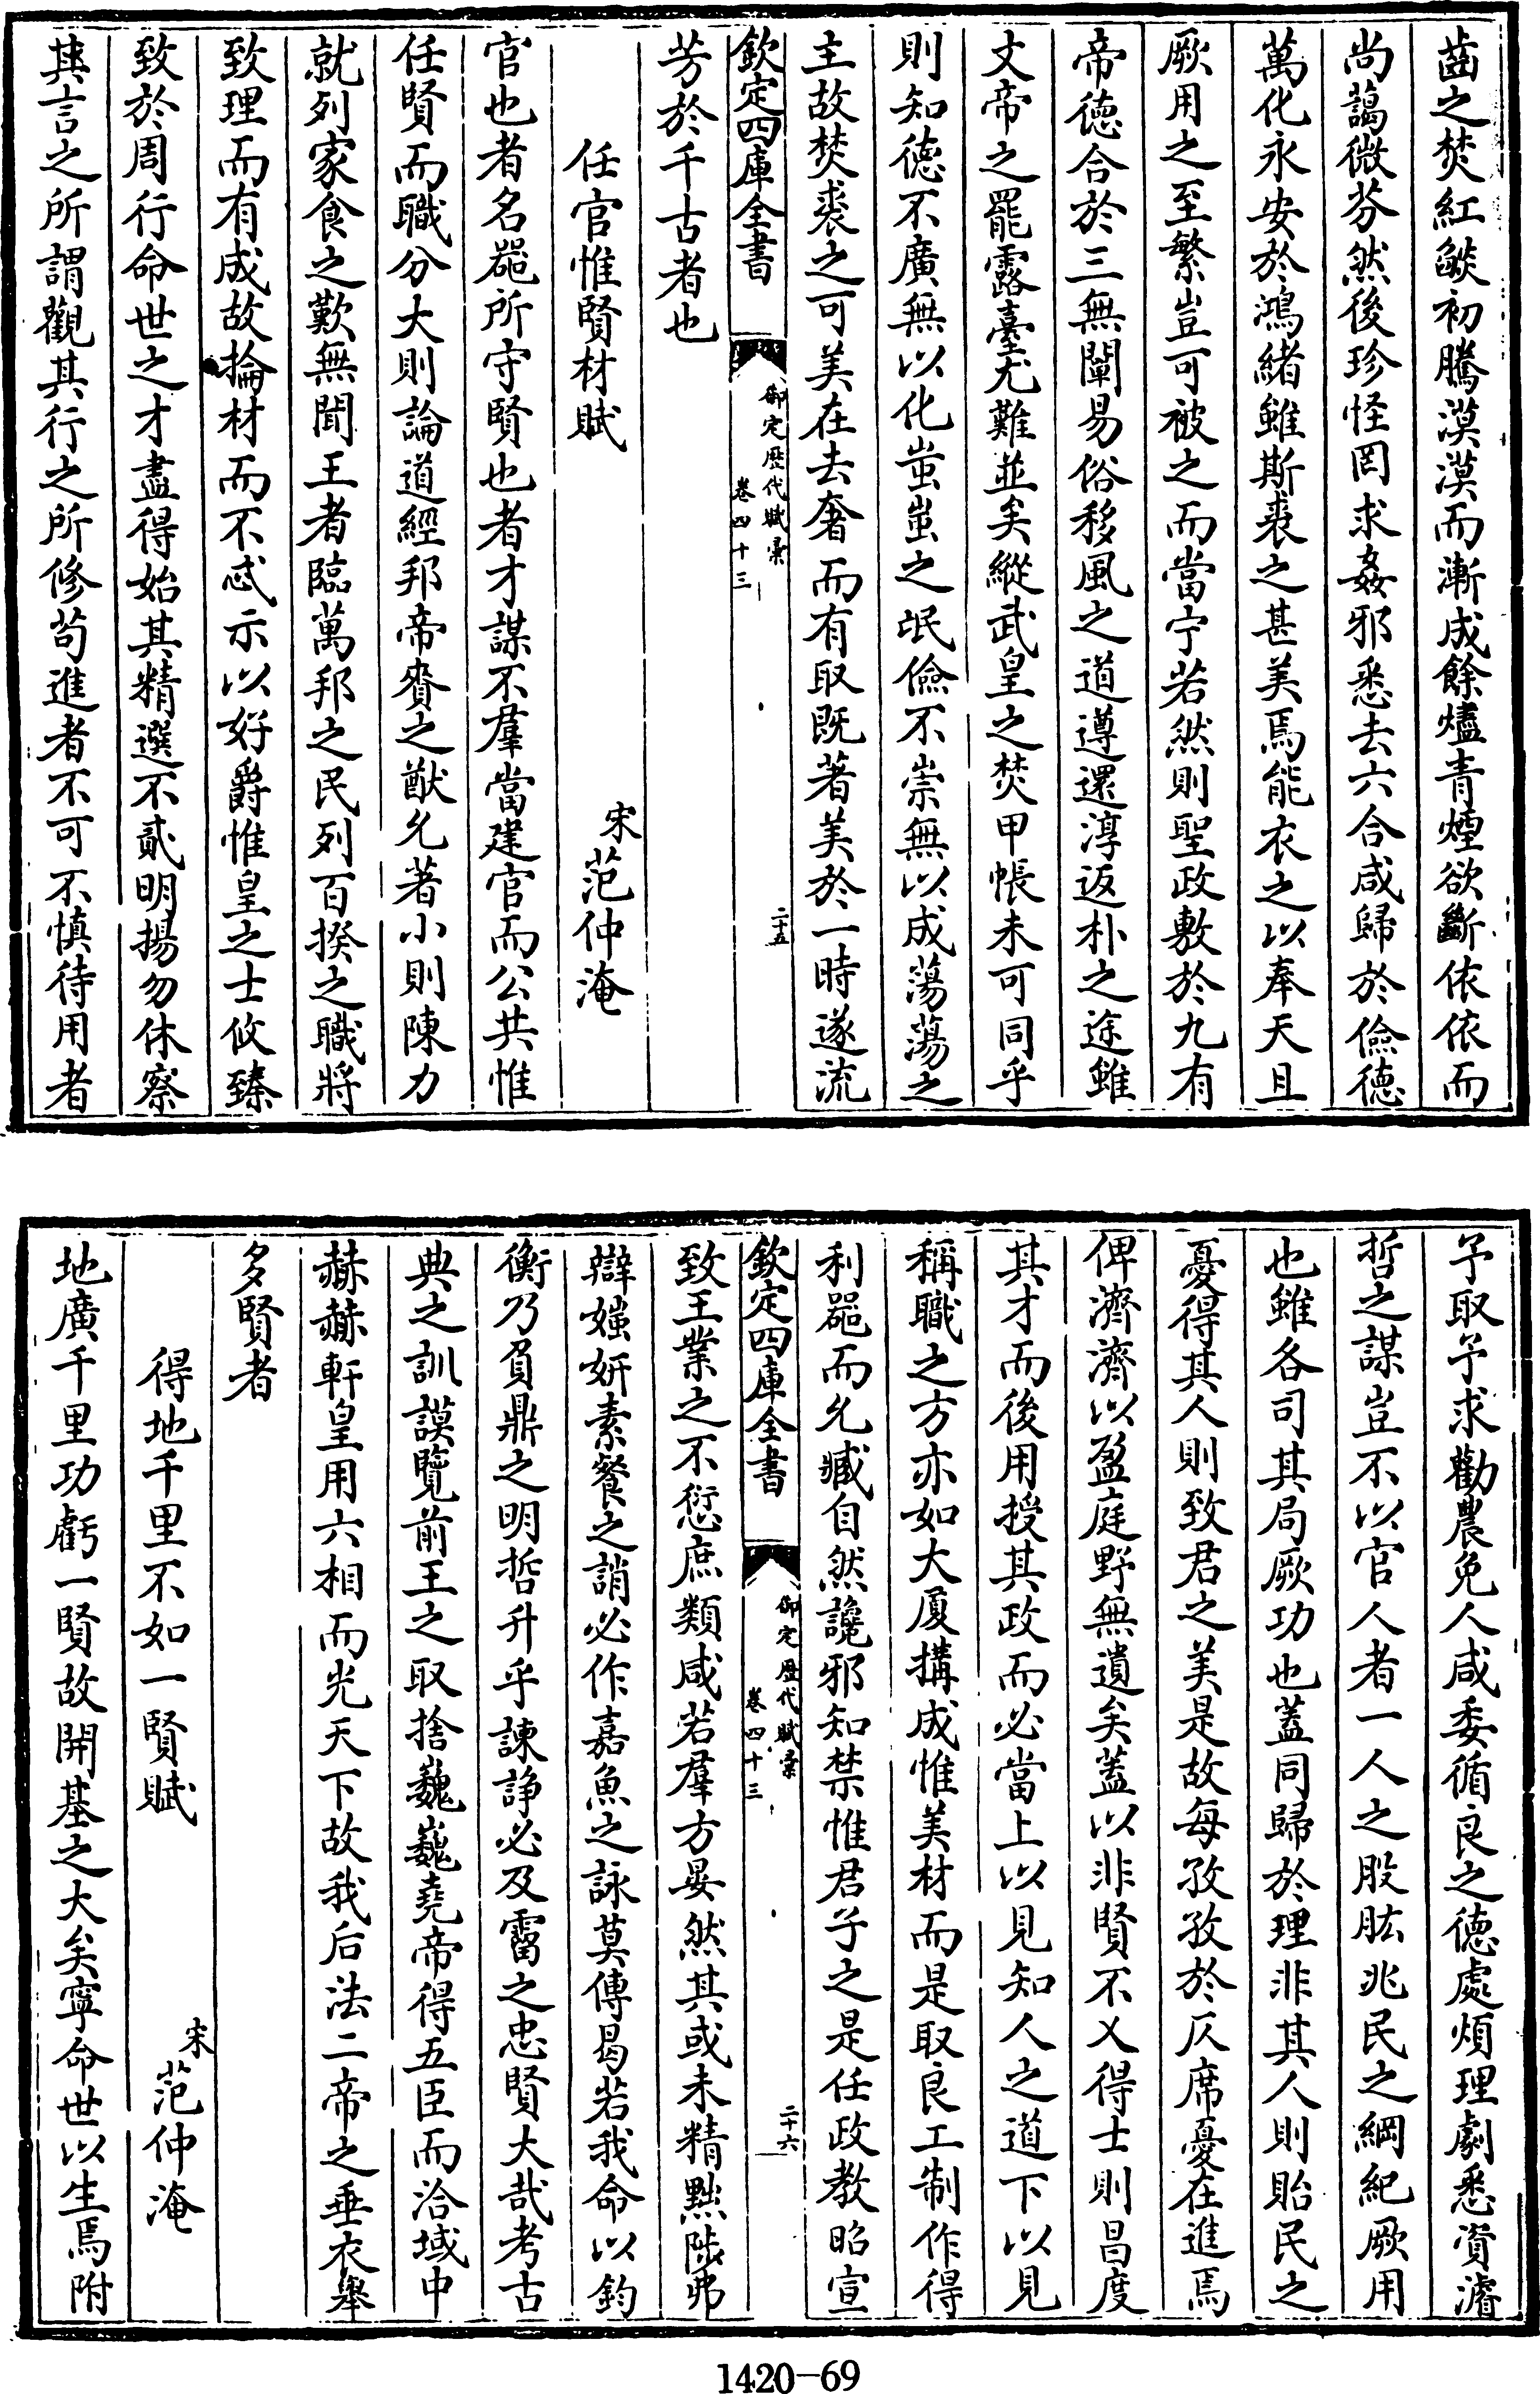 齒之焚紅燄初騰漠漠而漸成餘燼青煙欲斷依依而
尚藹微芬然後珍怪罔求姦邪悉去六合咸歸於儉德
萬化永安於鴻緒雖斯裘之甚美焉能衣之以奉天且
厥用之至繁豈可被之而當宁若然則聖政敷於九有
帝德合於三無闡易俗移風之道遵還淳返朴之途雖
文帝之罷露臺尤難並矣縱武皇之焚甲帳未可同乎
則知德不廣無以化蚩蚩之氓儉不崇無以成蕩蕩之
主故焚裘之可美在去奢而有取既著美於一時遂流
欽定四庫全書
御定歷代賦彙
卷四十三
二十五
芳於千古者也
任官惟賢材賦
宋范仲淹
官也者名器所守賢也者才謀不羣當建官而公共惟
任賢而職分大則論道經邦帝賚之猷允著小則陳力
就列家食之歎無聞王者臨萬邦之民列百揆之職將
致理而有成故掄材而不忒示以好爵惟皇之士攸臻
致於周行命世之才盡得始其精選不貳明揚勿休察
其言之所謂觀其行之所修苟進者不可不慎待用者
予取予求勸農免人咸委循良之德處煩理劇悉資濬
哲之謀豈不以官人者一人之股肱兆民之綱紀厥用
也雖各司其局厥功也蓋同歸於理非其人則貽民之
憂得其人則致君之美是故每孜孜於仄席憂在進焉
俾濟濟以盈庭野無遺矣蓋以非賢不乂得士則昌度
其才而後用授其政而必當上以見知人之道下以見
稱職之方亦如大厦搆成惟美材而是取良工制作得
利器而允臧自然讒邪知禁惟君子之是任政教昭宣
欽定四庫全書
御定歷代賦彙
卷四十三
二十六
致王業之不愆庶類咸若羣方晏然其或未精黜陟弗
辯媸妍素餐之誚必作嘉魚之詠莫傳曷若我命以鈞
衡乃負鼎之明哲升乎諫諍必及霤之忠賢大哉考古
典之訓謨覽前王之取捨巍巍堯帝得五臣而洽域中
赫赫軒皇用六相而光天下故我后法二帝之垂衣舉
多賢者
得地千里不如一賢賦
宋范仲淹
地廣千里功虧一賢故開基之大矣寧命世以生焉附
1420-69